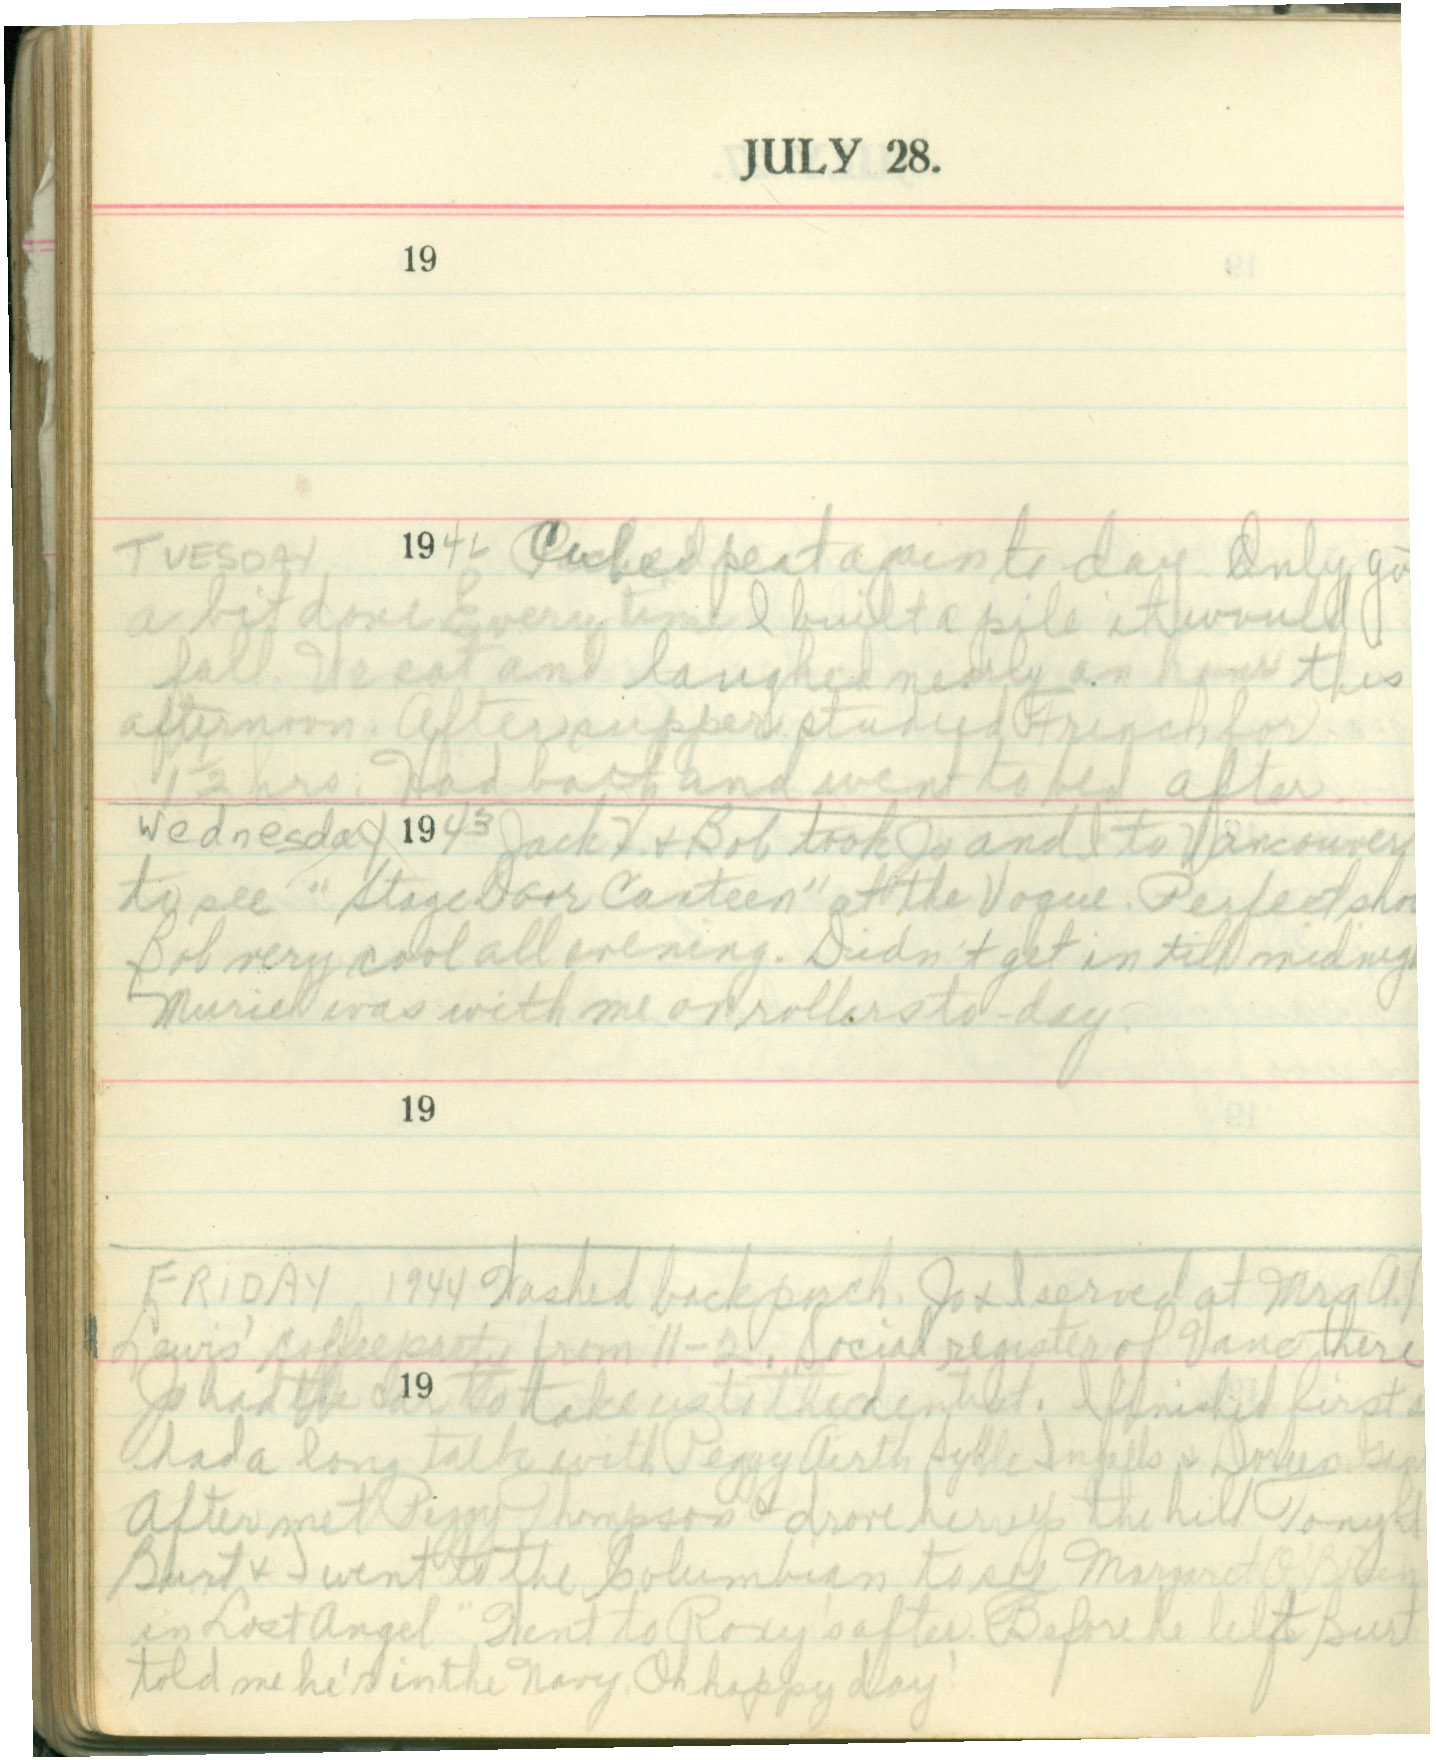 JULY 28.
19
TUESDAY 1942 peat again to day. Only go
a bit done Every time I built a pile it would
fall. We sat and laughed nearly an hour this
afternoon. After supper studied French for
1½ hrs. Had bath and went to bed after.
Wednesday 1943 Jack V. & Bob took Jo and I to Vancouver
to see "Stage Door Canteen" at the Vogue. Perfect show
Bob very cool all evening. Didn't get in till midnigh
Muriel was with me on rollers to-day.
19
FRIDAY 1944 Washed back porch. Jo & I served at Mrs A.
Lewis' coffee party from 11-2. Social register of Vanc there
19
Jo had the car to take us to the dentist. I finished first
had a long talk with Peggy Airth Ingalls & Doreen
After met Peggy Thompson & drove her up the hill Tonight
Burt & I went to the Columbian to see Margaret O'Brien
in Lost Angel" Went to Roxy's after. Before he left Burt
told me he's in the Navy. Oh happy day!